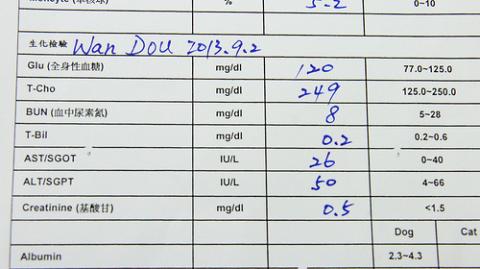 % 5-2 0~10
生化檢驗 Wan Dou 2013.9.2
Glu (全身性血糖) mg/dl 120 77.0~125.0
T-Cho mg/dl 249 125.0~250.0
BUN (血中尿素氮) mg/dl 8 5~28
T-Bil mg/dl 0.2 0.2~0.6
AST/SGOT IU/L 26 0~40
ALT/SGPT IU/L 50 4~66
Creatinine (基酸甘) mg/dl 0.5 <1.5
Dog Cat
Albumin 2.3~4.3